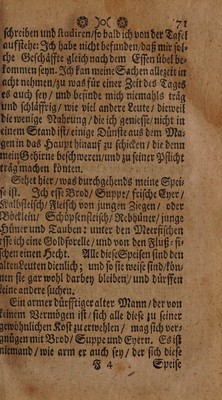 71
schreiben und studiren/so bald ich von der Tafel
aufstehe: Ich habe nicht befunden/daß mir sol-
che Geschäffte gleich nach dem Essen übel be-
kommen seyn. Ich kan meine Sachen allezeit in
acht nehmen/zu was für einer Zeit des Tages
es auch sey / und befinde mich niemahls träg
und schläffrig / wie viel andere Leute/dieweil
die wenige Nahrung / die ich geniesse/nicht in
einem Stand ist/einige Dünste aus dem Ma-
gen in das Haupt hinauf zu schicken/die denn
mein Gehirne beschweren/und zu seiner Pflicht
träg machen könten.
Sehet hier/was durchgehends meine Spei-
se ist. Ich esse Brod/Suppe/frische Eyer/
Kalbsfleisch/Fleisch von jungen Ziegen / oder
Böcklein / Schöpsenfleisch/Rebhüner/junge
Hüner und Tauben: unter den Meerfischen
esse ich eine Goldforelle/und von den Fluß-fi-
schen einen Hecht. Alle diese Speisen sind den
alten Leuten dienlich; und so sie weise sind/können
sie gar wohl darbey bleiben/und dürffen
keine andere suchen.
Ein armer dürfftiger alter Mann/der von
keinem Vermögen ist/sich alle diese zu seiner
gewöhnlichen Kost zu erwehlen / mag sich ver-
gnügen mit Brod/Suppe und Eyern. Es ist
niemand/wie arm er auch sey/der sich diese
F 4 Speise